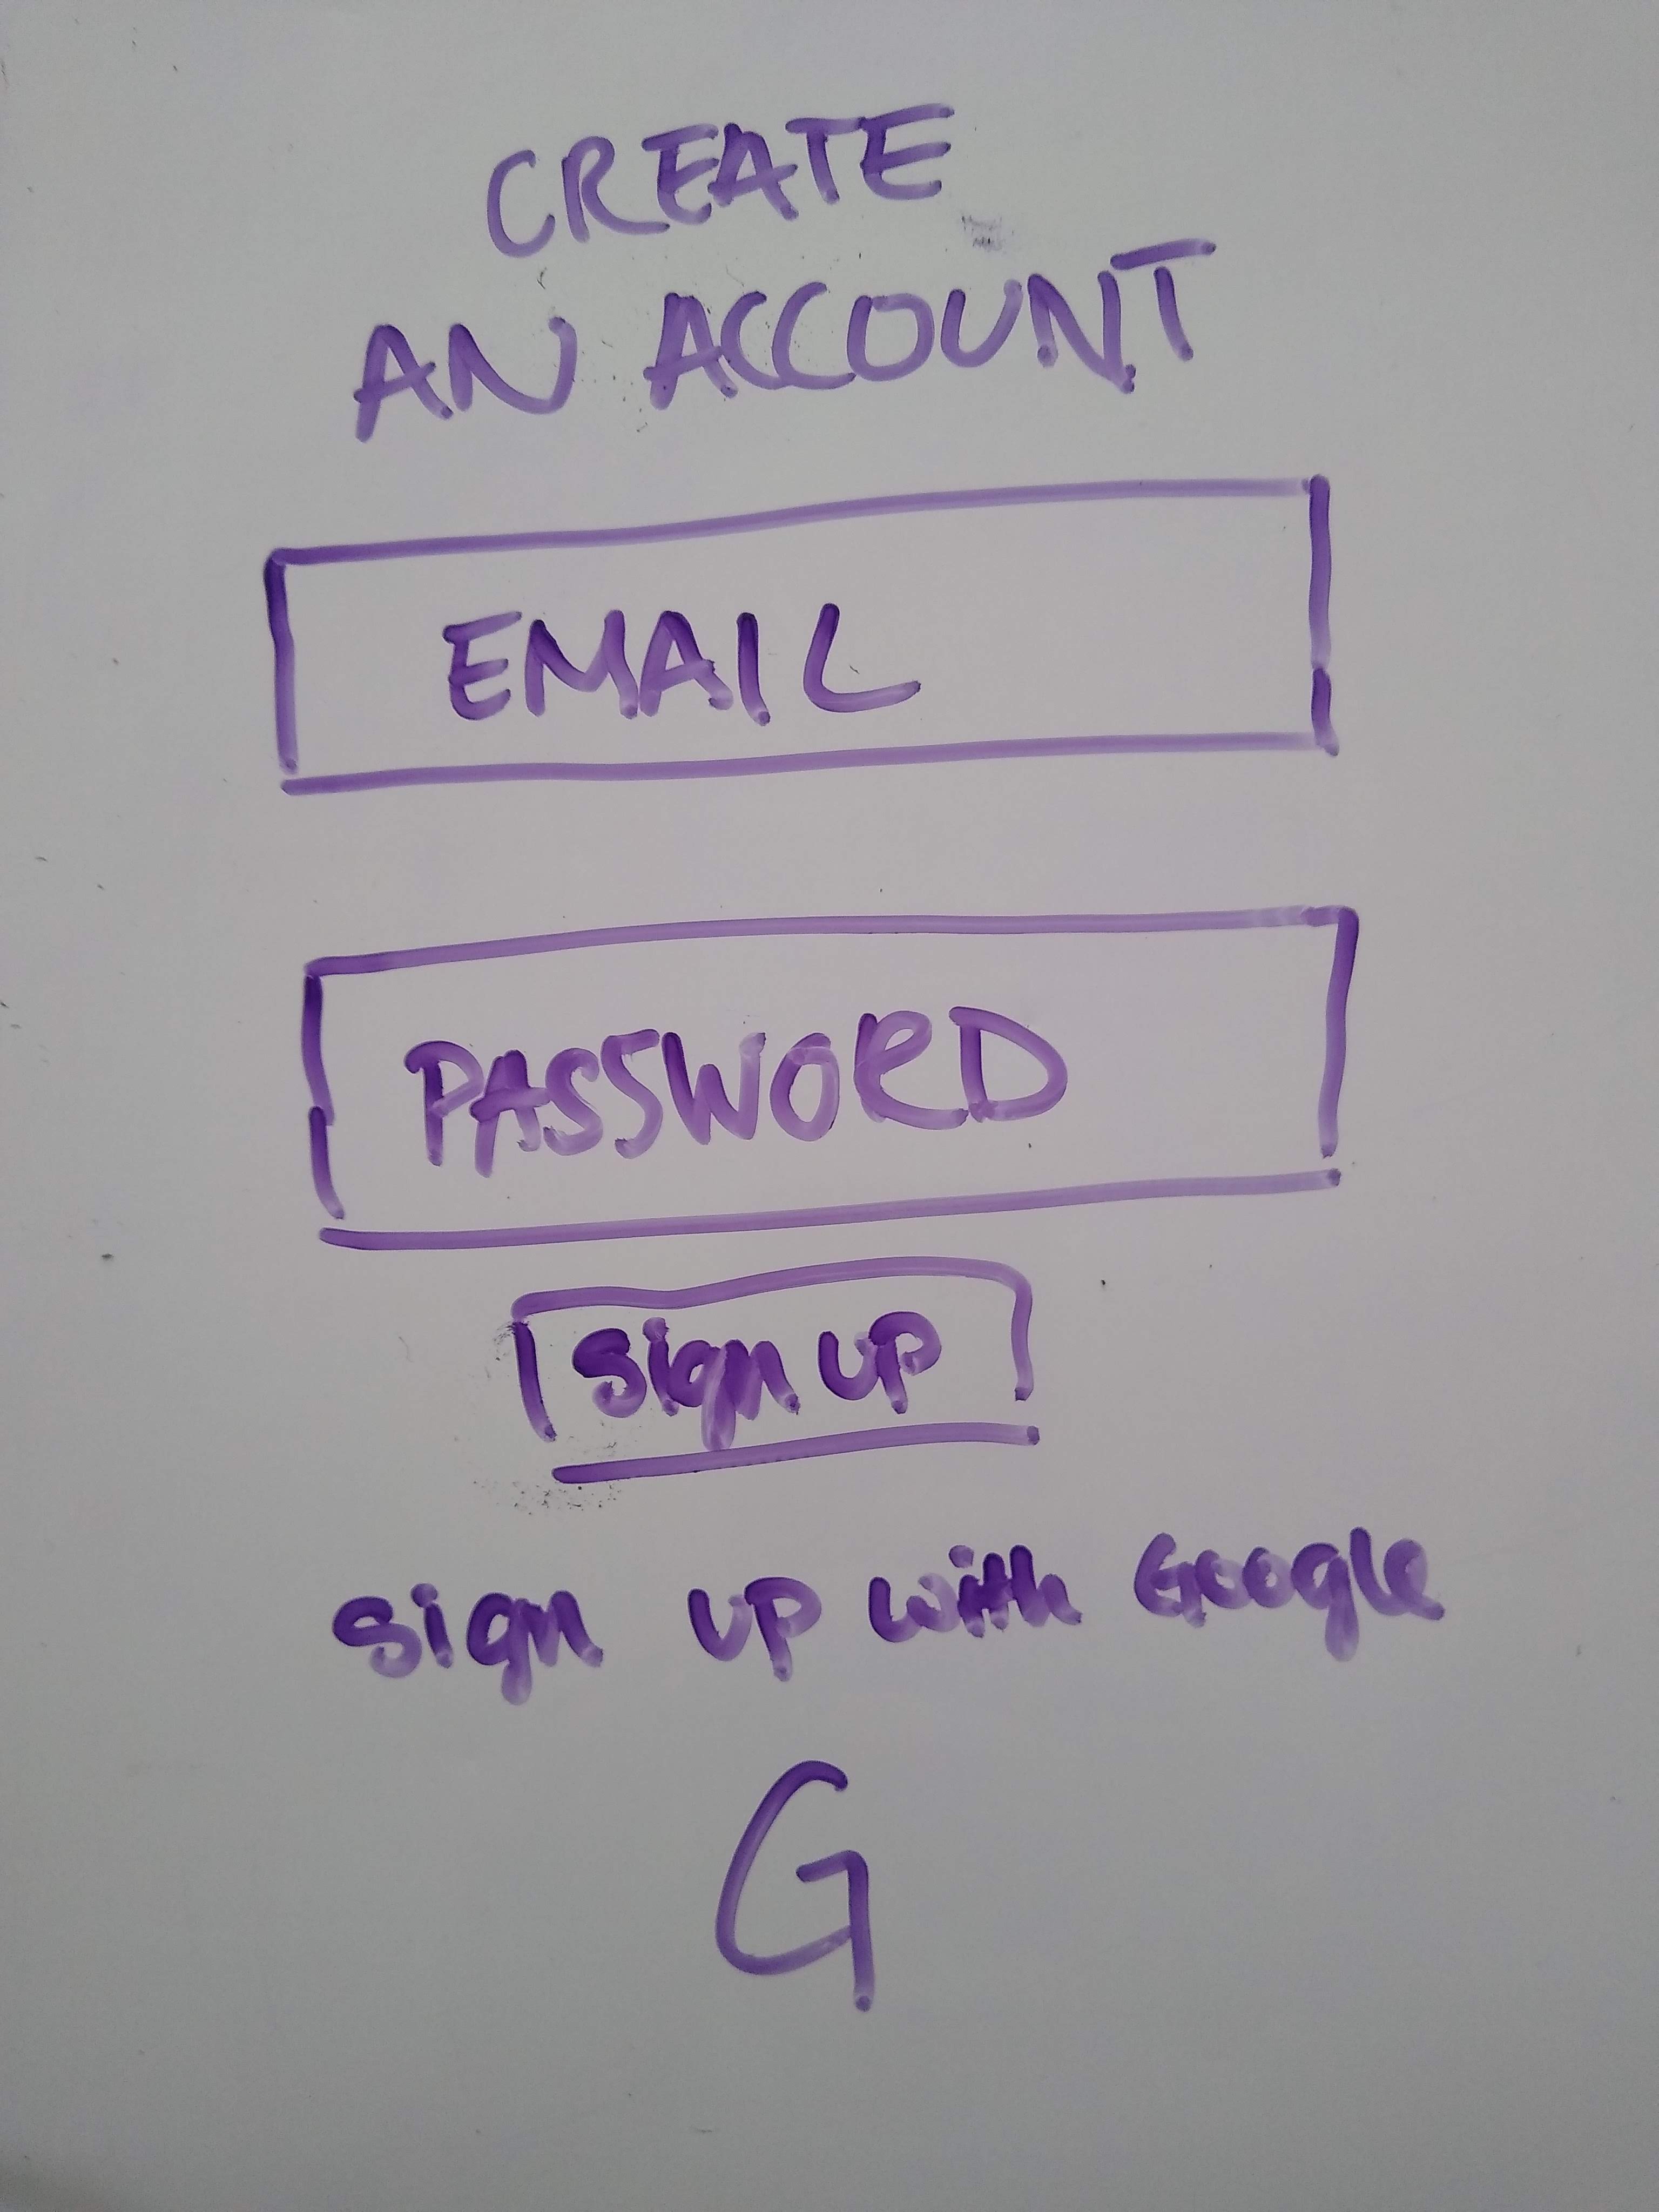 CREATE
AN ACCOUNT
EMAIL
PASSWORD
sign up
sign up with Google
G